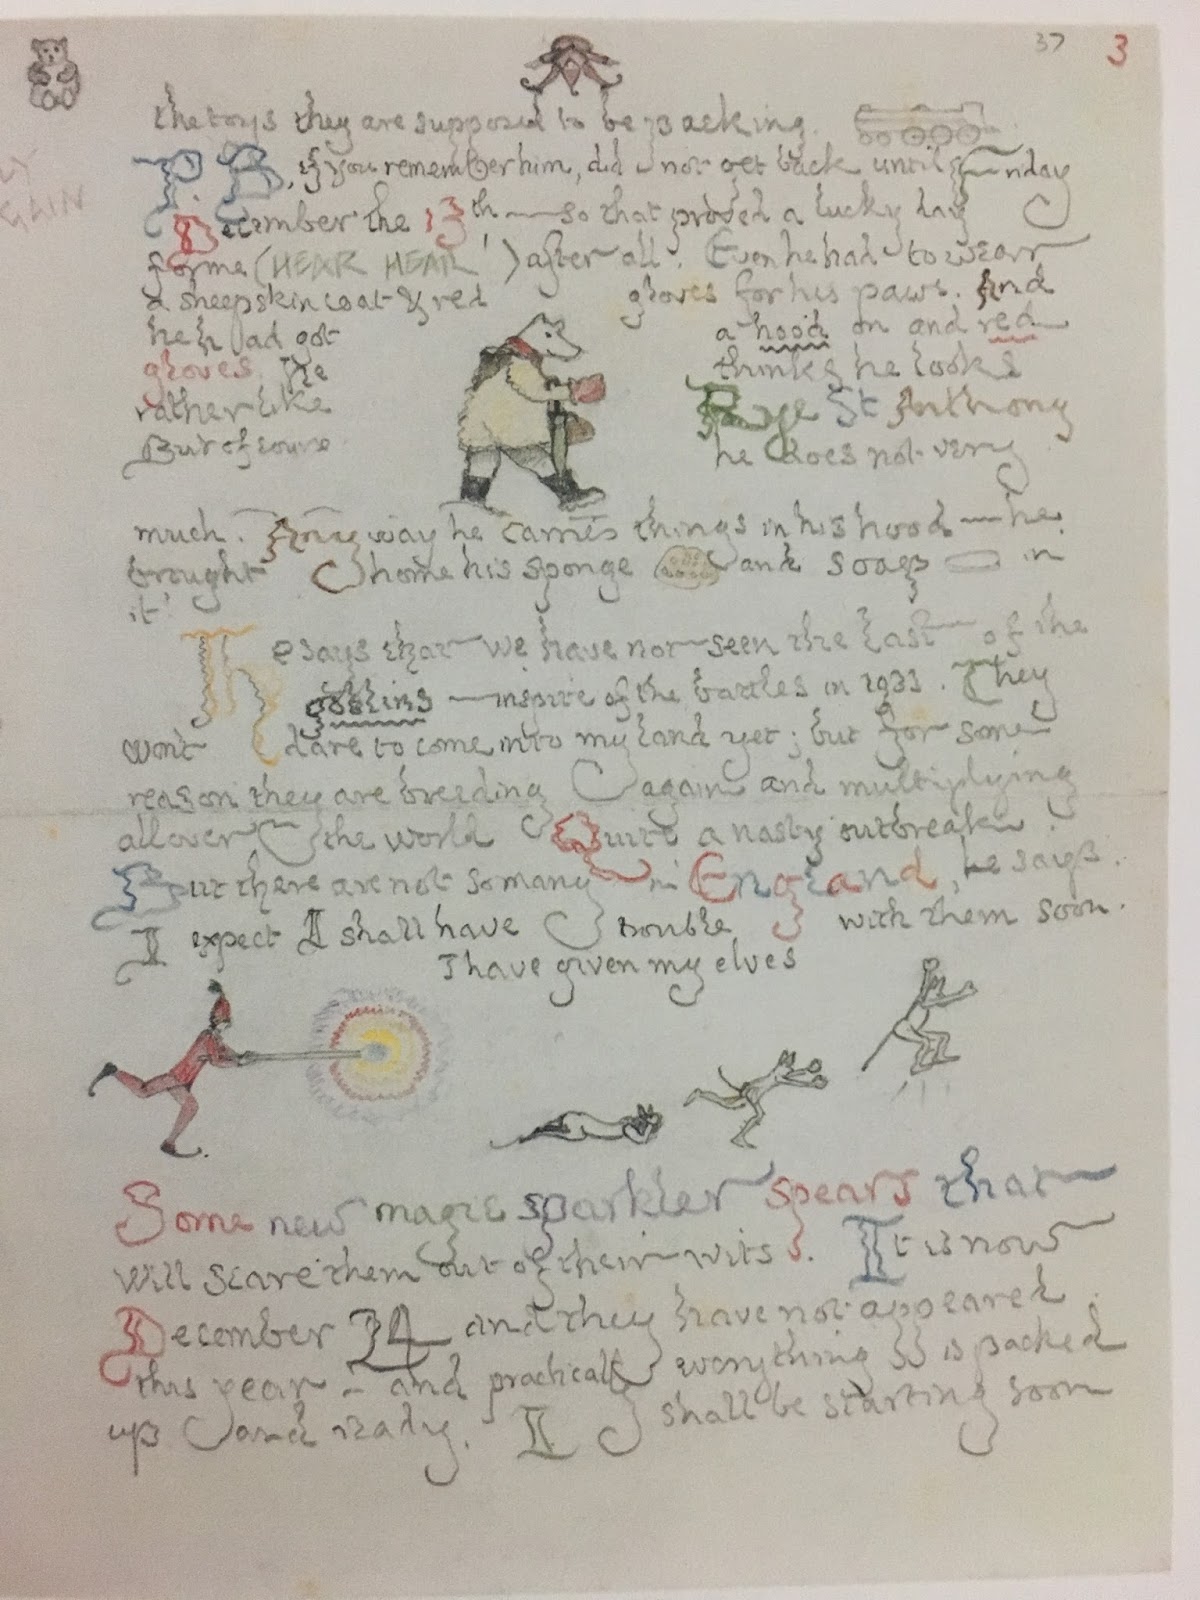 37 3
the toys they are supposed to be packing.
P.B., if you remember him, did not get back until Friday
December the 13th — so that proved a lucky day
for me (HEAR HEAR!) after all. Even he had to wear
a sheepskin coat & red gloves for his paws. And
he had got a hood on and red
gloves. He thinks he looks
rather like Rye St Anthony
But of course he does not very
much. Anyway he carries things in his hood — he
brought home his sponge and soap in
it!
He says that we have not seen the last of the
goblins — in spite of the battles in 1933. They
won't dare to come into my land yet; but for some
reason they are breeding again and multiplying
all over the world. Quite a nasty outbreak.
But there are not so many in England, he says.
I expect I shall have trouble with them soon.
I have given my elves
Some new magic sparkler spears that
will scare them out of their wits. It is now
December 24 and they have not appeared
this year – and practically everything is packed
up and ready. I shall be starting soon